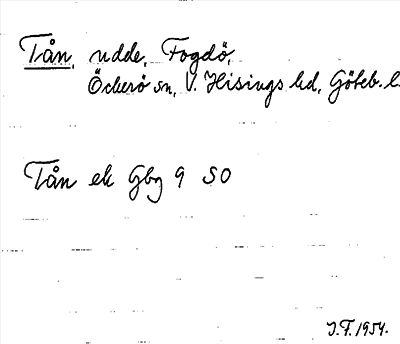 Tån, udde, Fogdö,
Öckerö sn, V. Hisings hd, Göteb. l.
Tån ek Gbg 9 SO
J.F. 1954.